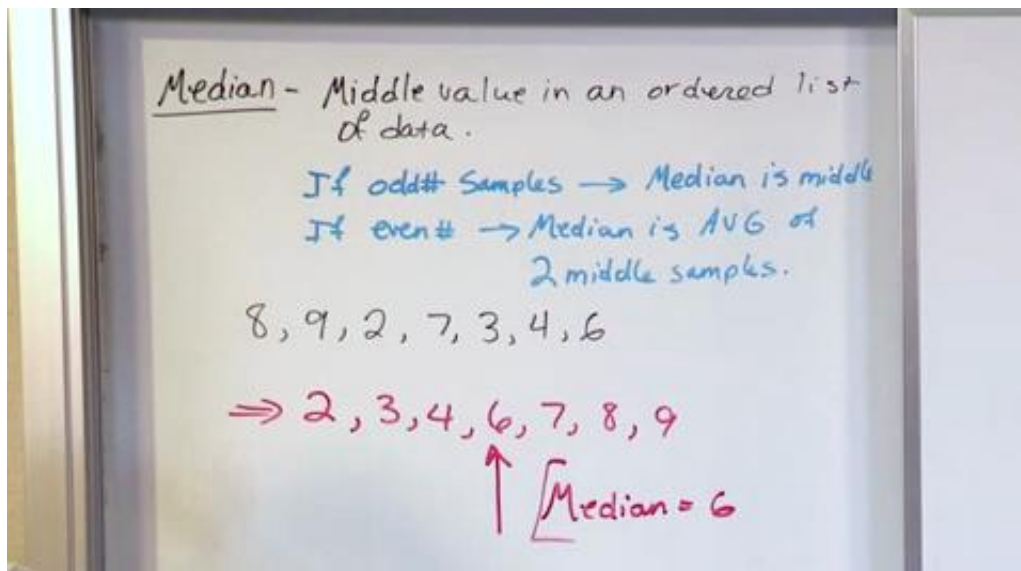 Median - Middle value in an ordered list
of data.
If odd# Samples → Median is middle
If even # → Median is AVG of
2 middle samples.
8, 9, 2, 7, 3, 4, 6
⇒ 2, 3, 4, 6, 7, 8, 9
Median = 6